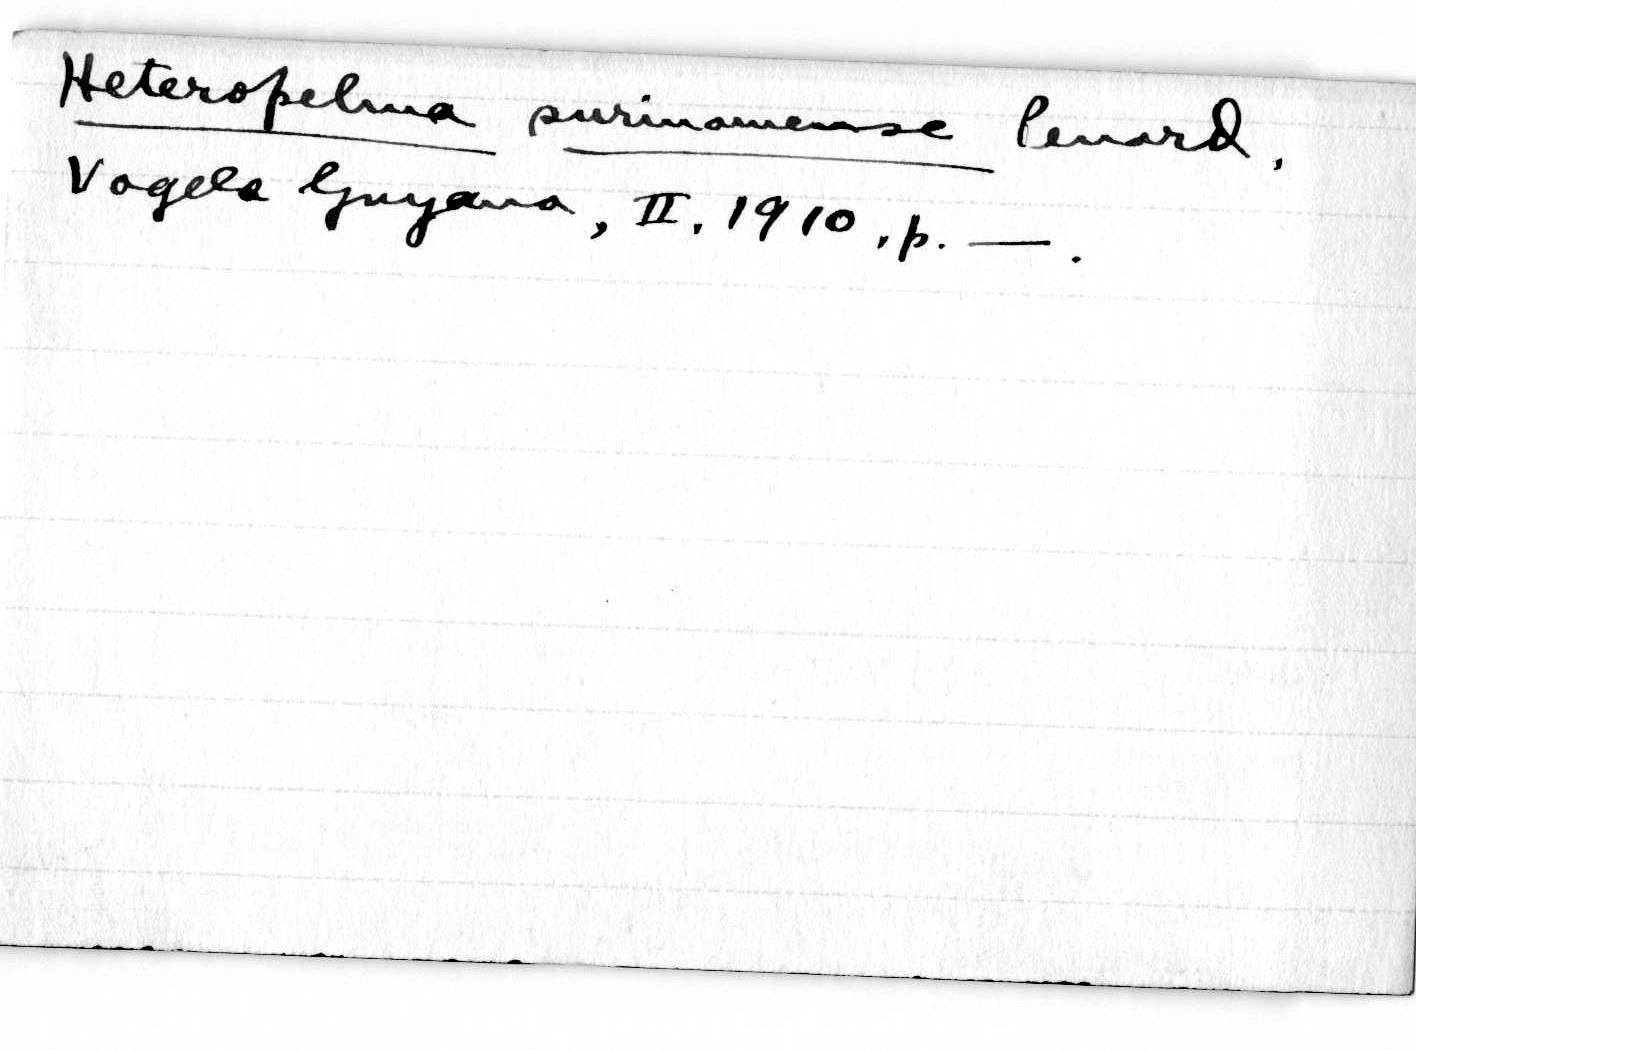 Heteropelma surinamense Penard,
Vogels Guyana, II, 1910, p. —.